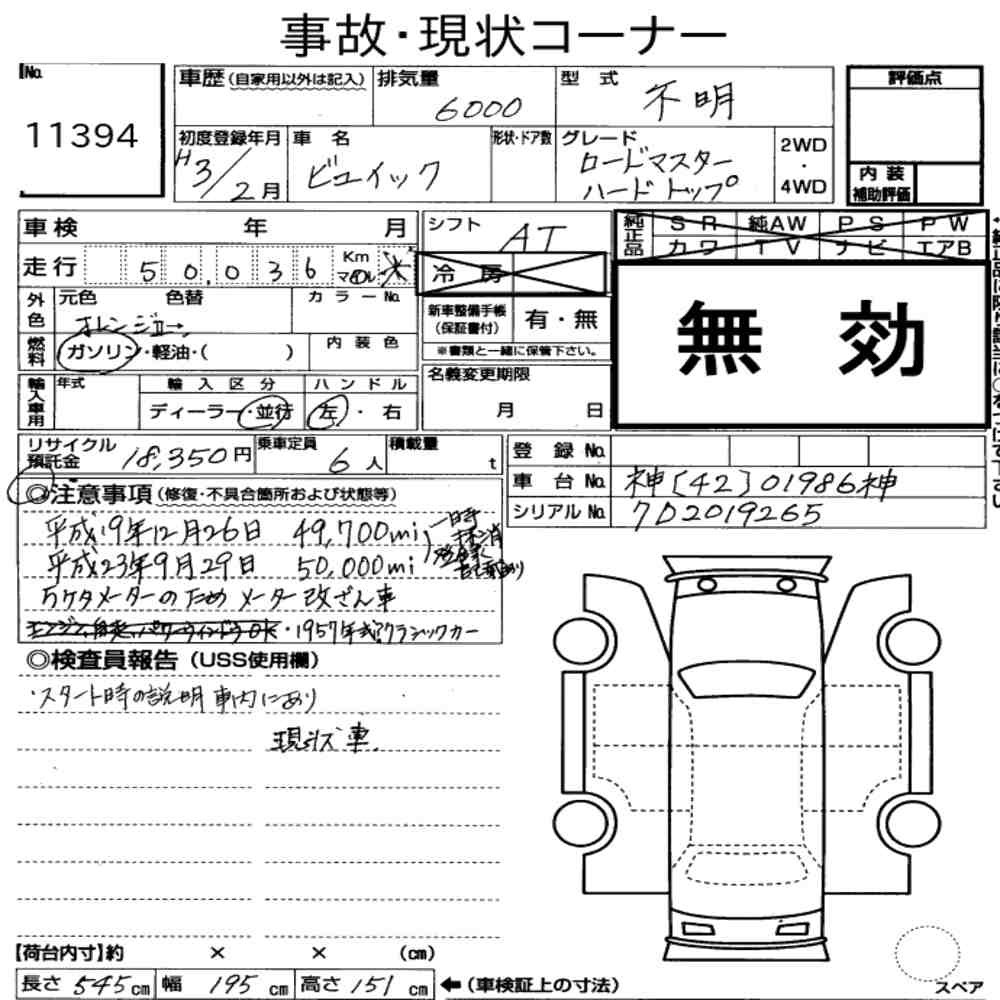 事故・現状コーナー
No.
11394
車歴(自家用以外は記入)
排気量
6000
型 式
不明
評価点
初度登録年月
H3/2月
車 名
ビュイック
形状・ドア数
グレード
ロードマスター
ハードトップ
2WD
・
4WD
内 装
補助評価
車検 年 月
走行 50,036 Km マイル ※
シフト
AT
冷 房
純正品
SR 純AW PS PW
カワ TV ナビ エアB
外色
元色 色替
オレンジ
カラーNo.
新車整備手帳
(保証書付)
有・無
※書類と一緒に保管下さい。
無 効
燃料
ガソリン・軽油・( )
内装色
輸入車用
年式
輸入区分
ディーラー・並行
ハンドル
左・右
名義変更期限
月 日
リサイクル
預託金
18,350円
乗車定員
6人
積載量
t
登 録 No.
車 台 No. 神[42]01986神
シリアル No. 7D2019265
◎注意事項(修復・不具合箇所および状態等)
平成19年12月26日 49,700mi
平成23年9月29日 50,000mi
一時
抹消
5ケタメーターのため メーター改ざん車
・1957年式クラシックカー
◎検査員報告(USS使用欄)
・スタート時の説明 車内にあり
現状車
【荷台内寸】約 × × (cm)
長さ 545cm 幅 195cm 高さ 151cm
←(車検証上の寸法)
スペア